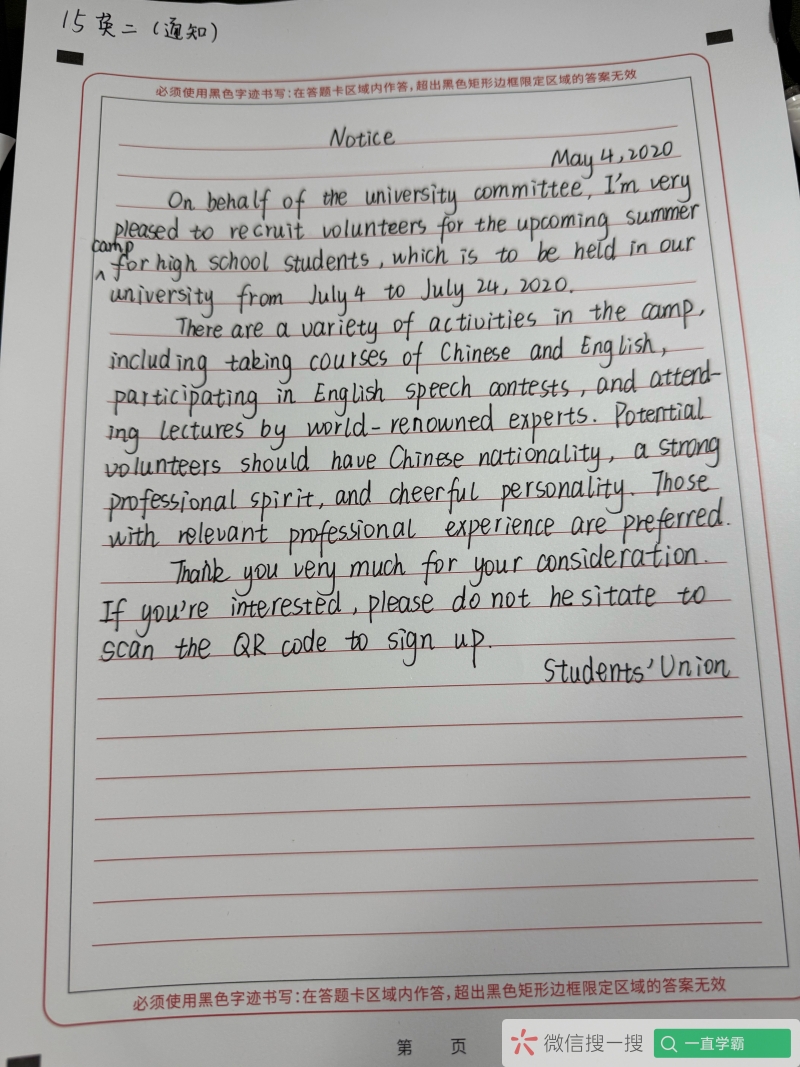 15 英二（通知）
必须使用黑色字迹书写:在答题卡区域内作答,超出黑色矩形边框限定区域的答案无效
Notice
May 4, 2020
On behalf of the university committee, I'm very
pleased to recruit volunteers for the upcoming summer
camp
^ for high school students, which is to be held in our
university from July 4 to July 24, 2020.
There are a variety of activities in the camp,
including taking courses of Chinese and English,
participating in English speech contests, and attend-
ing lectures by world-renowned experts. Potential
volunteers should have Chinese nationality, a strong
professional spirit, and cheerful personality. Those
with relevant professional experience are preferred.
Thank you very much for your consideration.
If you're interested, please do not hesitate to
scan the QR code to sign up.
Students' Union
必须使用黑色字迹书写:在答题卡区域内作答,超出黑色矩形边框限定区域的答案无效
第 页
微信搜一搜 一直学霸